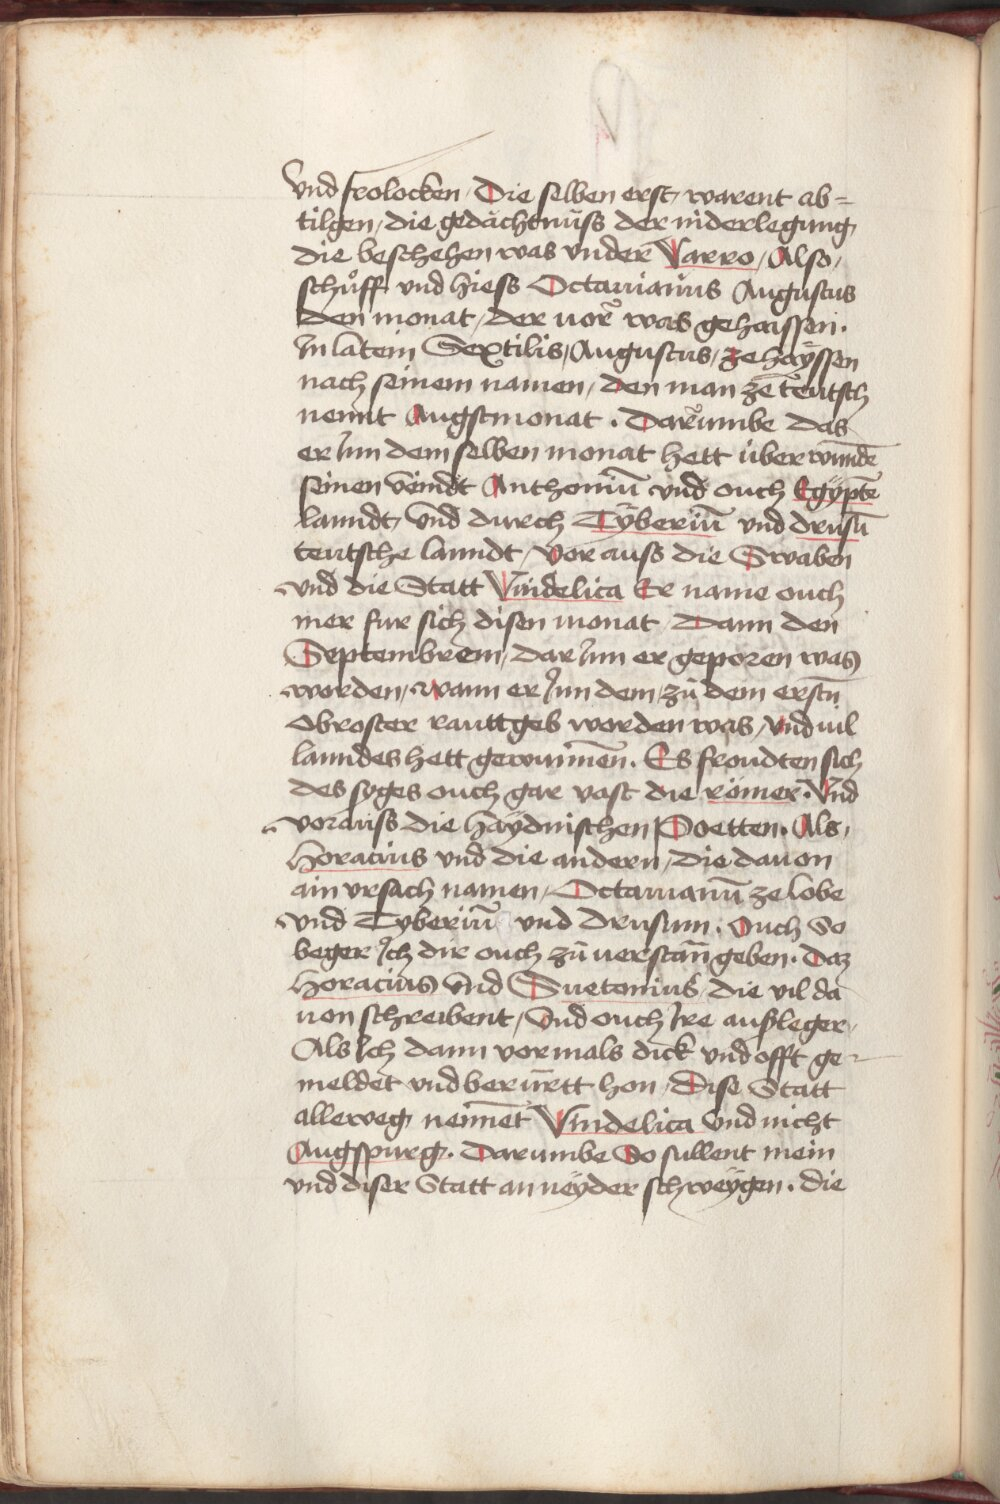 vnd frolocken / Die selben erst / warent ab=
tilgen / die gedächtnüss der niderlegung
die beschehen was vnder Varro / Also /
schůff vnd hiess Octauianus Augustus
den monat / der uor was gehaissen .
In latein Sextilis / Augustus / ze haÿssen
nach seinem namen / den man ze teütsch
nennt Augstmonat . Darumbe das
er Inn dem selben monat hett überwundē
seinen veindt Anthoniū vnd ouch Egÿptē
lanndt / vnd durch Tÿberiū vnd drusū
teutsche lanndt / vor auss die Swaben
vnd die Statt Vindelica Er name ouch
mer fur sich disen monat / Dann den
Septembrem / dar Inn er geporen was
worden / wann er Inn dem / zů dem erstn̄
obroster rauttgeb worden was / vnd uil
lanndes hett gewunnen̄ . Es froudten sich
des syges ouch gar vast die römer . Vnd
vorauss die haÿdnischen Poetten . Als /
Horacius vnd die andern / die dauon
ain vrsach namen / Octauianū ze lobe
vnd Tyberiū vnd Drusum . Ouch so
beger Ich dir ouch zů uerstan̄ geben . Daz
Horacius vnd Suetonius / die vil da
uon schreibent / vnd ouch Ire außleger /
Als Ich dann vormals dick vnd offt ge=
meldet vnd berürtt hon / Dise Statt
allerweg nennet Vindelica vnd nicht
Augspurg . Darumbe So sullent mein
vnd diser Statt an neÿder schweÿgen . die